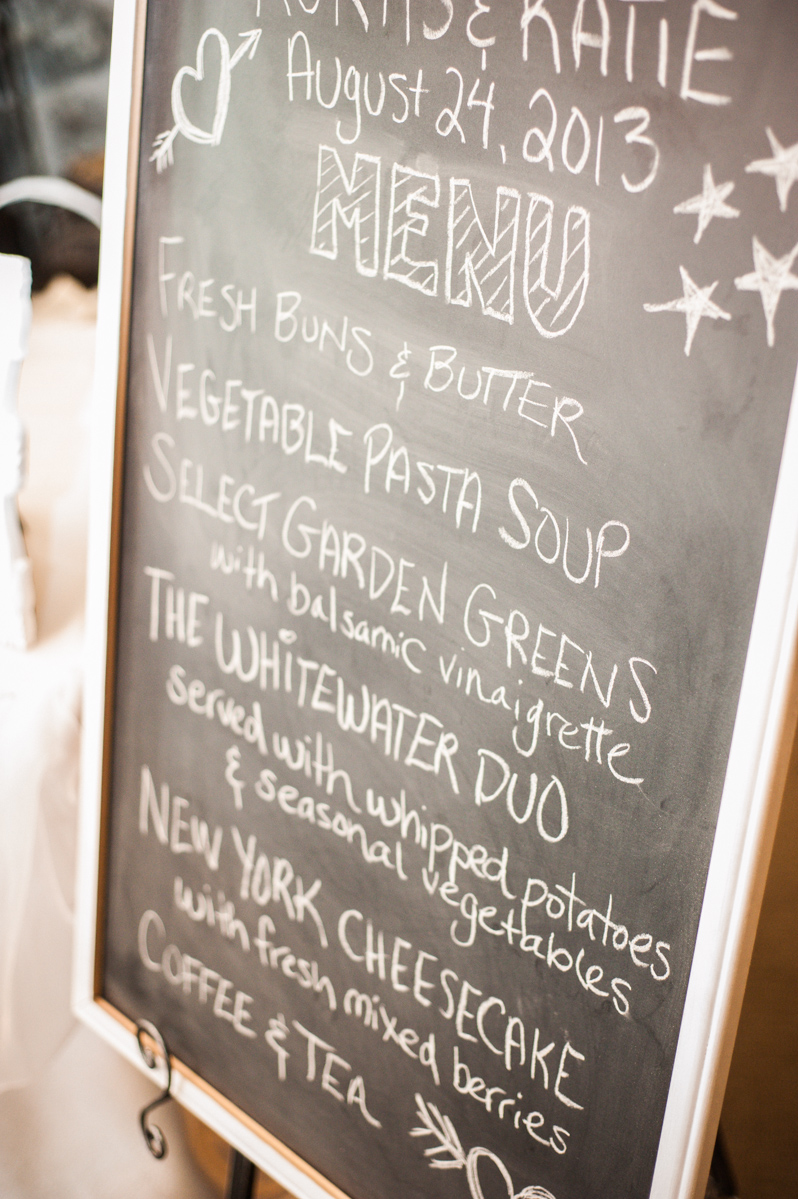 & KATIE
August 24, 2013
MENU
FRESH BUNS & BUTTER
VEGETABLE PASTA SOUP
SELECT GARDEN GREENS
with balsamic vinaigrette
THE WHITEWATER DUO
served with whipped potatoes
& seasonal vegetables
NEW YORK CHEESECAKE
with fresh mixed berries
COFFEE & TEA